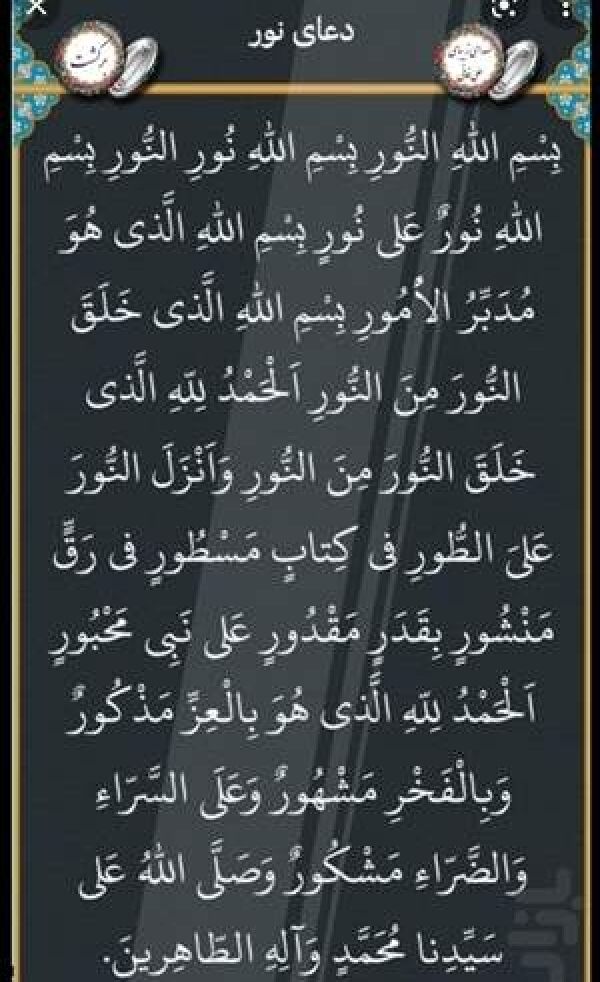 دعای نور
سرگذشت
بِسْمِ اللهِ النُّورِ بِسْمِ اللهِ نُورِ النُّورِ بِسْمِ
اللهِ نُورٌ عَلى نُورٍ بِسْمِ اللهِ الَّذى هُوَ
مُدَبِّرُ الاُمُورِ بِسْمِ اللهِ الَّذى خَلَقَ
النُّورَ مِنَ النُّورِ اَلْحَمْدُ لِلّهِ الَّذى
خَلَقَ النُّورَ مِنَ النُّورِ وَاَنْزَلَ النُّورَ
عَلىَ الطُّورِ فى كِتابٍ مَسْطُورٍ فى رَقٍّ
مَنْشُورٍ بِقَدَرٍ مَقْدُورٍ عَلى نَبِى مَحْبُورٍ
اَلْحَمْدُ لِلّهِ الَّذى هُوَ بِالْعِزِّ مَذْكُورٌ
وَبِالْفَخْرِ مَشْهُورٌ وَعَلَى السَّرّاءِ
وَالضَّرّاءِ مَشْكُورٌ وَصَلَّى اللهُ عَلى
سَيِّدِنا مُحَمَّدٍ وَآلِهِ الطّاهِرينَ.
بازار